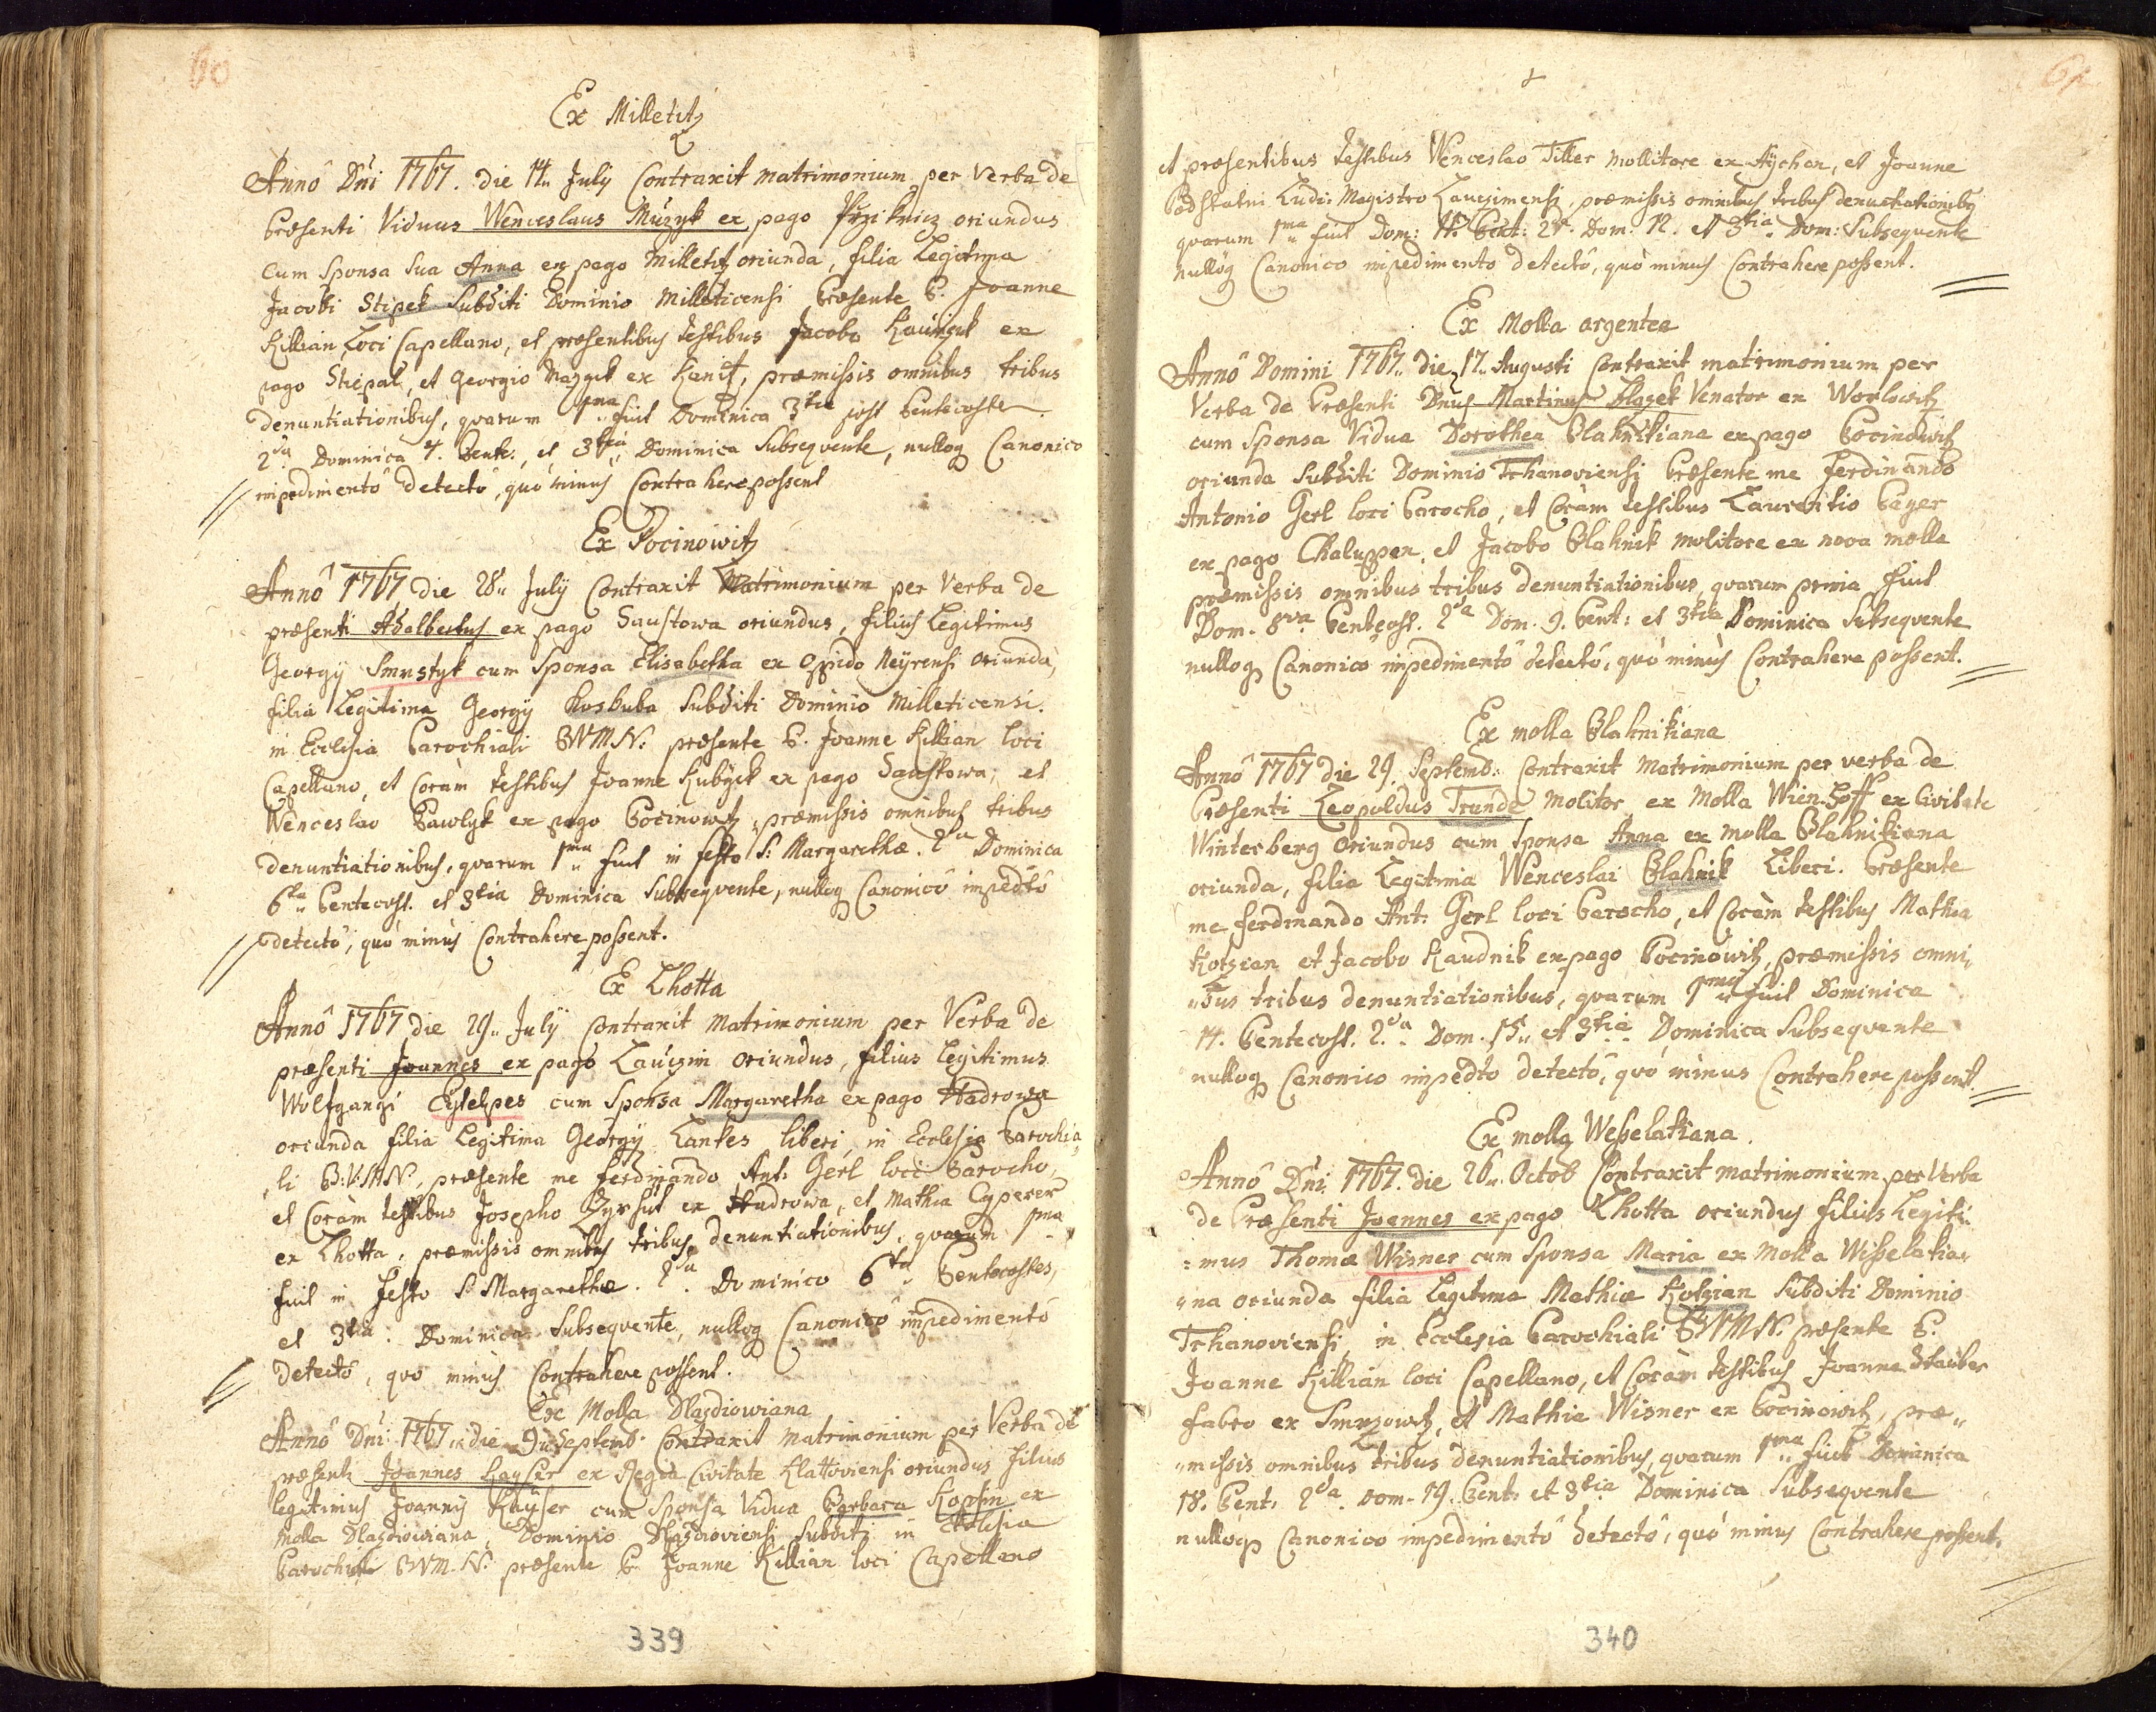 60
Ex Milletitz
Anno Dni 1767. die 14. July Contraxit matrimonium per Verba de
Præsenti Viduus Wenceslaus Muzyk ex pago oriundus
Cum Sponsa Sua Anna ex pago Milletitz oriunda, filia Legitima
Jacobi Stipek Subditi Dominio Milleticensi Præsente P. Joanne
Killian Loci Capellano, et præsentibus testibus Jacobo ex
pago et Georgio ex præmissis omnibus tribus
denuntiationibus, quarum 1ma fuit Dominica 3tia post Pentecosten
2da Dominica 4. Pente: et 3tia Dominica Subsequente, nulloq Canonico
impedimento detecto, quo minus Contrahere possent
Ex Pocinowitz
Anno 1767 die 28. July Contraxit Matrimonium per Verba de
præsenti Adalbertus ex pago Saustowa oriundus, filius Legitimus
Georgy Smrstyk cum Sponsa Elisabetha ex Oppido Neyrensi oriunda,
filia Legitima Georgy Koskuba Subditi Dominio Milleticensi.
in Ecclesia Parochiali BVMN. præsente P. Joanne Killian loci
Capellano, et Coram testibus Joanne Kubyck ex pago Saustowa, et
Wenceslao Pawlyk ex pago Pocinowitz, præmissis omnibus tribus
denuntiationibus, quarum 1ma fuit in festo S: Margarethæ. 2da Dominica
6ta Pentecost. et 3tia Dominica Subsequente, nulloq Canonico impedto
detecto, quo minus Contrahere possent.
Ex Lhotta
Anno 1767 die 29. July Contraxit Matrimonium per Verba de
præsenti Joannes ex pago Lauczim oriundus, filius legitimus
Wolfgangi cum Sponsa Margaretha ex pago Hadrowa
oriunda filia Legitima Georgy Tankes liberi, in Ecclesia Parochia
li B:V:M:N., præsente me Ferdinando Ant: Gerl loci Parocho,
et Coram testibus Josepho ex Hadrowa, et Mathia Cyperer
ex Lhotta, præmissis omnibus tribus denuntiationibus, quarum 1ma
fuit in Festo S. Margarethæ. 2da. Dominico 6ta Pentecostes,
et 3tia. Dominica Subsequente, nulloq Canonico impedimento
detecto, quo minus Contrahere possent.
Ex Molla Dlazdiowiana
Anno Dni 1767 die 9. Septemb. Contraxit matrimonium per Verba de
præsenti Joannes Kayser ex Regia Civitate Klattoviensi oriundus filius
legitimus Joannis Kayser cum Sponsa Vidua Barbara Kopfin ex
Molla Dlazdiowiana, Dominio Dlazdioviensi Subditi in Ecclesia
Parochiali BVM.N. præsente P. Joanne Killian loci Capellano
339
61
et præsentibus testibus Wenceslao Tiller Mollitore ex Aychen, et Joanne
Podstatni Ludi: Magistro Lauczimensi, præmissis omnibus tribus denuntiationibq
quarum 1ma fuit Dom: 11. Pent: 2da. Dom. 12. et 3tia. Dom: Subsequente
nulloq Canonico impedimento detecto, quo minus Contrahere possent.
Ex Molla argentea
Anno Domini 1767. die 17. Augusti Contraxit matrimonium per
Verba de Præsenti Dnus Martinus Blazek Venator ex Worlowitz
cum Sponsa Vidua Dorothea Blahnikiana ex pago Pocinowitz
oriunda Subditi Dominio Tchanoviensi Præsente me Ferdinando
Antonio Gerl loci Parocho, et Coram testibus Laurentio Payer
ex pago Chaluppen, et Jacobo Blahnik Molitore ex nova molla
præmissis omnibus tribus denuntiationibus, quarum prima fuit
Dom. 8va Pentecost. 2da Dom. 9. Pent: et 3tia Dominica Subsequente
nulloq Canonico impedimento detecto, quo minus Contrahere possent.
Ex molla Blahnikiana
Anno 1767 die 29. Septemb: Contraxit Matrimonium per verba de
Præsenti Leopoldus Trunde Molitor ex Molla Wienhoff ex Civitate
Winterberg oriundus cum Sponsa Anna ex molla Blahnikiana
oriunda, filia Legitima Wenceslai Blahnik Liberi. Præsente
me Ferdinando Ant: Gerl loci Parocho, et Coram testibus Mathia
Kotzian et Jacobo Kaudnik ex pago Pocinowitz, præmissis omni
bus tribus denuntiationibus, quarum 1ma fuit Dominica
14. Pentecost. 2da. Dom. 15. et 3tia. Dominica Subsequente
nulloq Canonico impedto detecto, quo minus Contrahere possent.
Ex molla Wesselakiana.
Anno Dni 1767. die 26. Octob Contraxit matrimonium per Verba
de Præsenti Joannes ex pago Lhotta oriundus filius Legiti:
:mus Thomæ Wisner cum Sponsa Maria ex Molla Wisselakia
na oriunda filia Legitima Mathiæ Kotzian Subditi Dominio
Tchanoviensi, in Ecclesia Parochiali BVMN. præsente P.
Joanne Killian loci Capellano, et Coram testibus Joanne Stauber
fabro ex Smrzowitz, et Mathia Wisner ex Pocinowitz, præ
missis omnibus tribus denuntiationibus, quarum 1ma fuit Dominica
18. Pent. 2da. Dom. 19. Pent: et 3tia Dominica Subsequente
nulloq Canonico impedimento detecto, quo minus Contrahere possent.
340